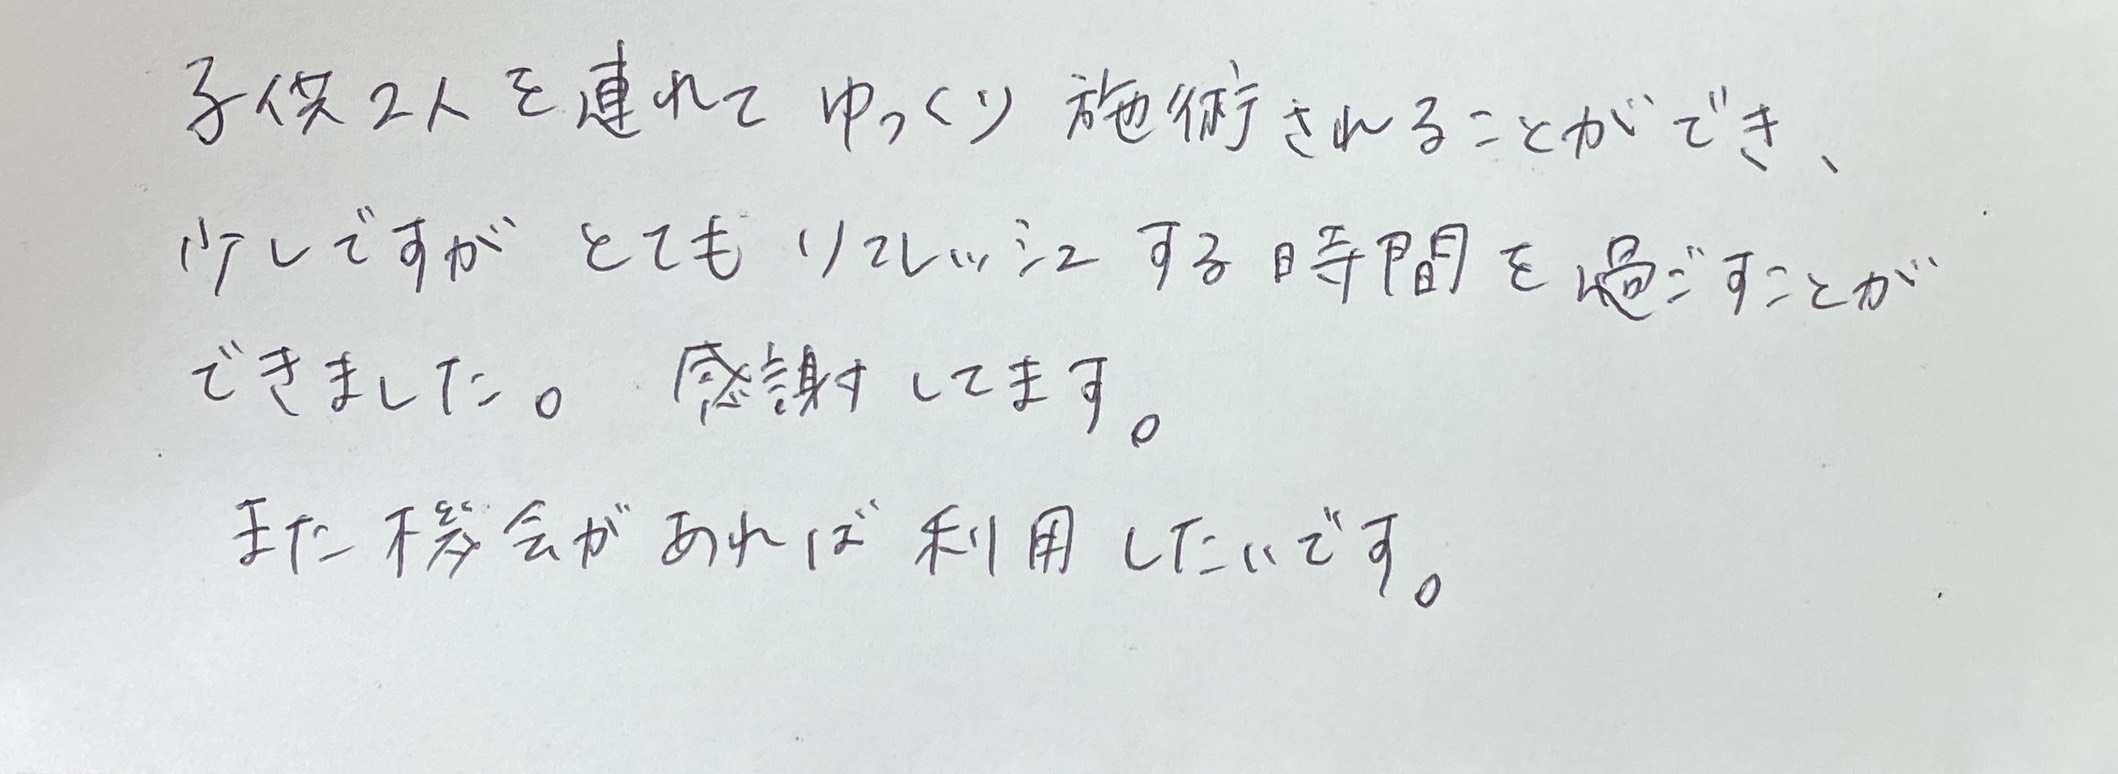 子供2人を連れてゆっくり施術されることができ、
少しですがとてもリフレッシュする時間を過ごすことが
できました。 感謝してます。
また機会があれば利用したいです。